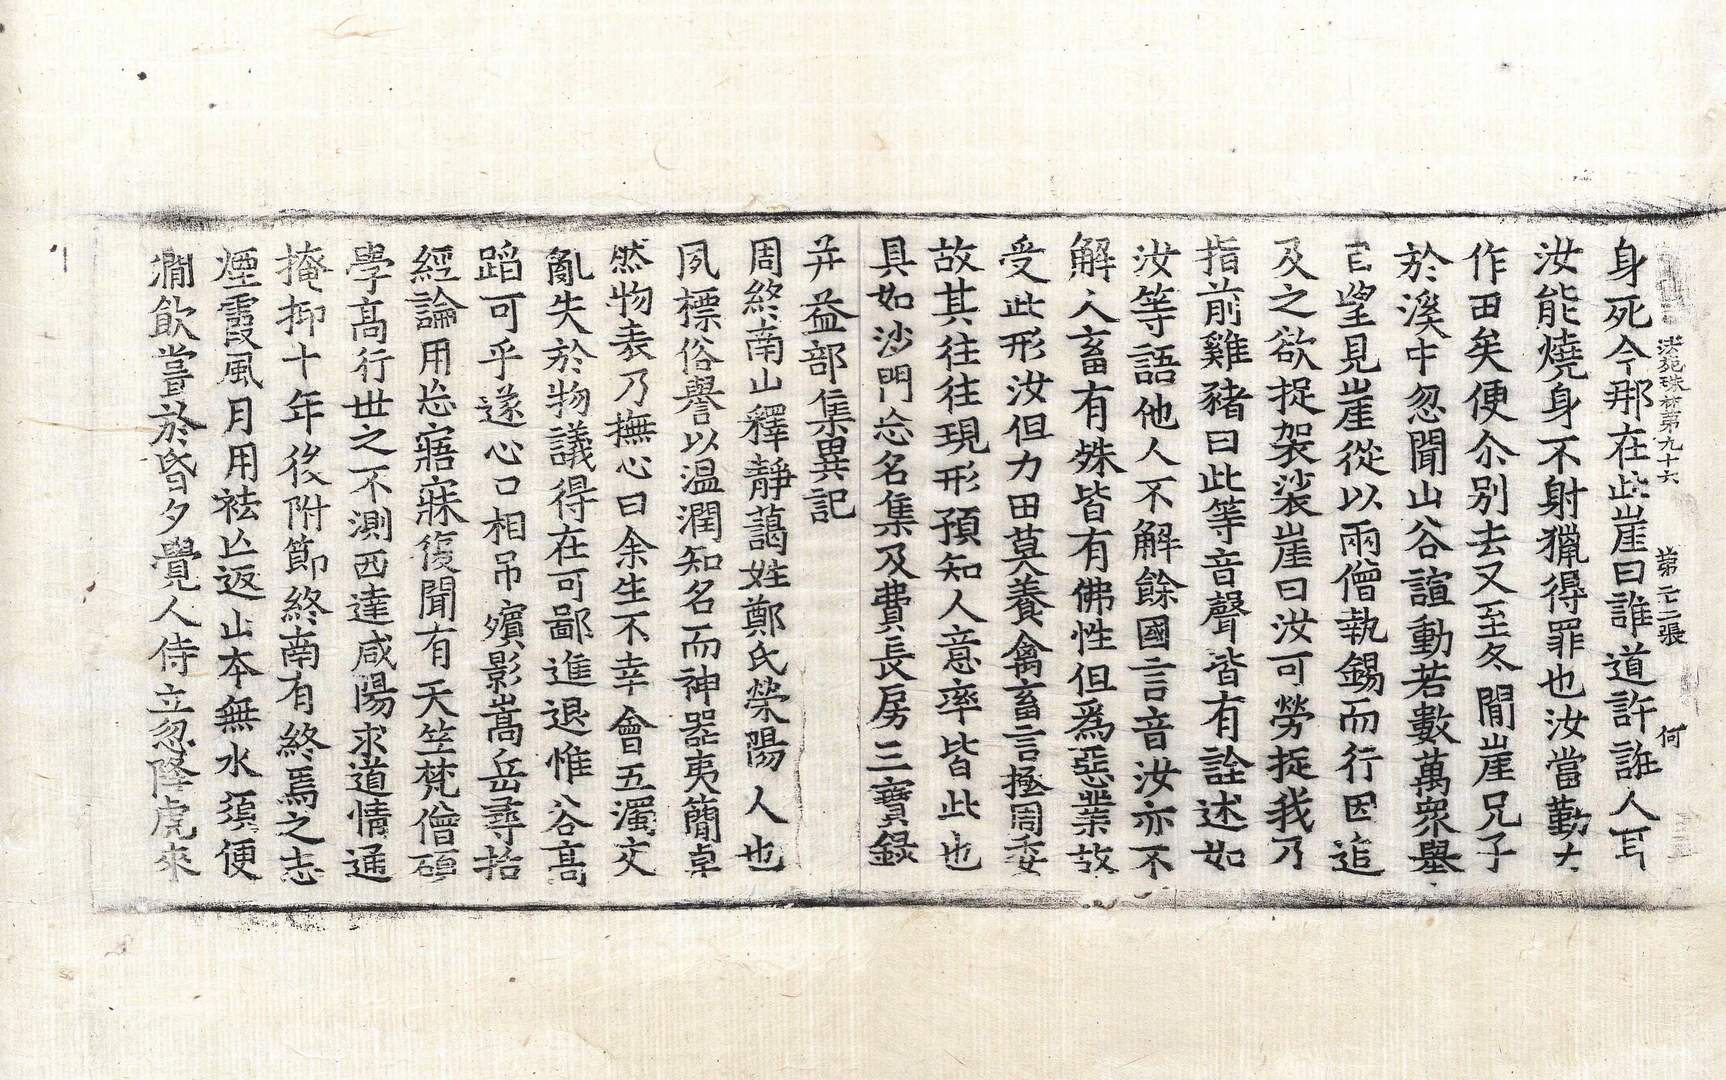 法苑珠林第九十六　第二十二張　何
身死今那在此崖曰誰道許誰人耳
汝能燒身不射獵得罪也汝當勤力
作田矣便尒別去又至冬閒崖兄子
於溪中忽聞山谷諠動若數萬衆舉
目望見崖從以兩僧執錫而行因追
及之欲捉袈裟崖曰汝可勞捉我乃
指前雞豬曰此等音聲皆有詮述如
汝等語他人不解餘國言音汝亦不
解人畜有殊皆有佛性但爲惡業故
受此形汝但力田莫養禽畜言極周委
故其往往現形預知人意率皆此也
具如沙門忘名集及費長房三寶錄
幷益部集異記
周終南山釋靜藹姓鄭氏滎陽人也
夙標俗譽以温潤知名而神器夷簡卓
然物表乃撫心曰余生不幸會五濁交
亂失於物議得在可鄙進退惟谷高
蹈可乎遂心口相吊擯影嵩岳尋括
經論用忘寤寐復聞有天竺梵僧碩
學高行世之不測西達咸陽求道情通
掩抑十年後附節終南有終焉之志
煙霞風月用袪亾返山本無水須便
澗飲嘗於昏夕覺人侍立忽降虎來